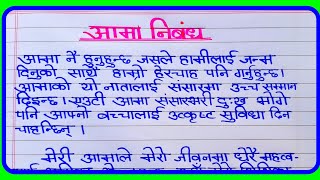 आमा निबंध
आमा नै हुनुहुन्छ जसुले हामीलाई जन्म
दिनुको साथै हाम्रो हेरचाह पनि गर्नुहुन्छ।
आमाको यो नातालाई संसारमा उच्च सम्मान
दिइन्छ। एउटी आमा संसारभरी दुःख भोगे
पनि आफ्नो बच्चालाई उत्कृष्ट सुविधा दिन
चाहन्छिन्।
मेरी आमाले मेरो जीवनमा धेरै महत्व-